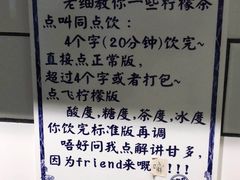 老细教你一些柠檬茶
点叫同点饮:
4个字(20分钟)饮完~
直接点正常版,
超过4个字或者打包~
点飞柠檬版
酸度,糖度,茶度,冰度
你饮完标准版再调
唔好问我点解讲甘多,
因为friend来嘅!!!